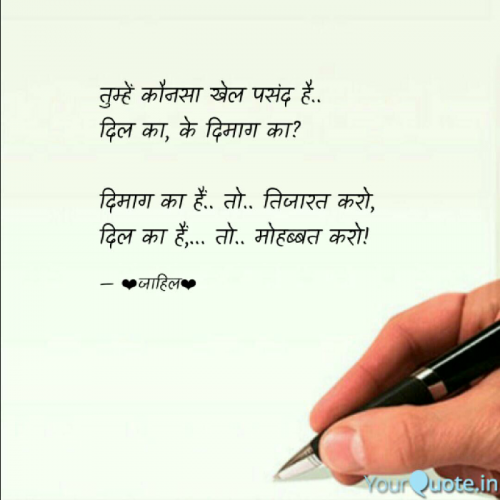 तुम्हें कौनसा खेल पसंद है..
दिल का, के दिमाग का?
दिमाग का हैं.. तो.. तिजारत करो,
दिल का हैं,... तो.. मोहब्बत करो!
— ❤जाहिल❤
YourQuote.in